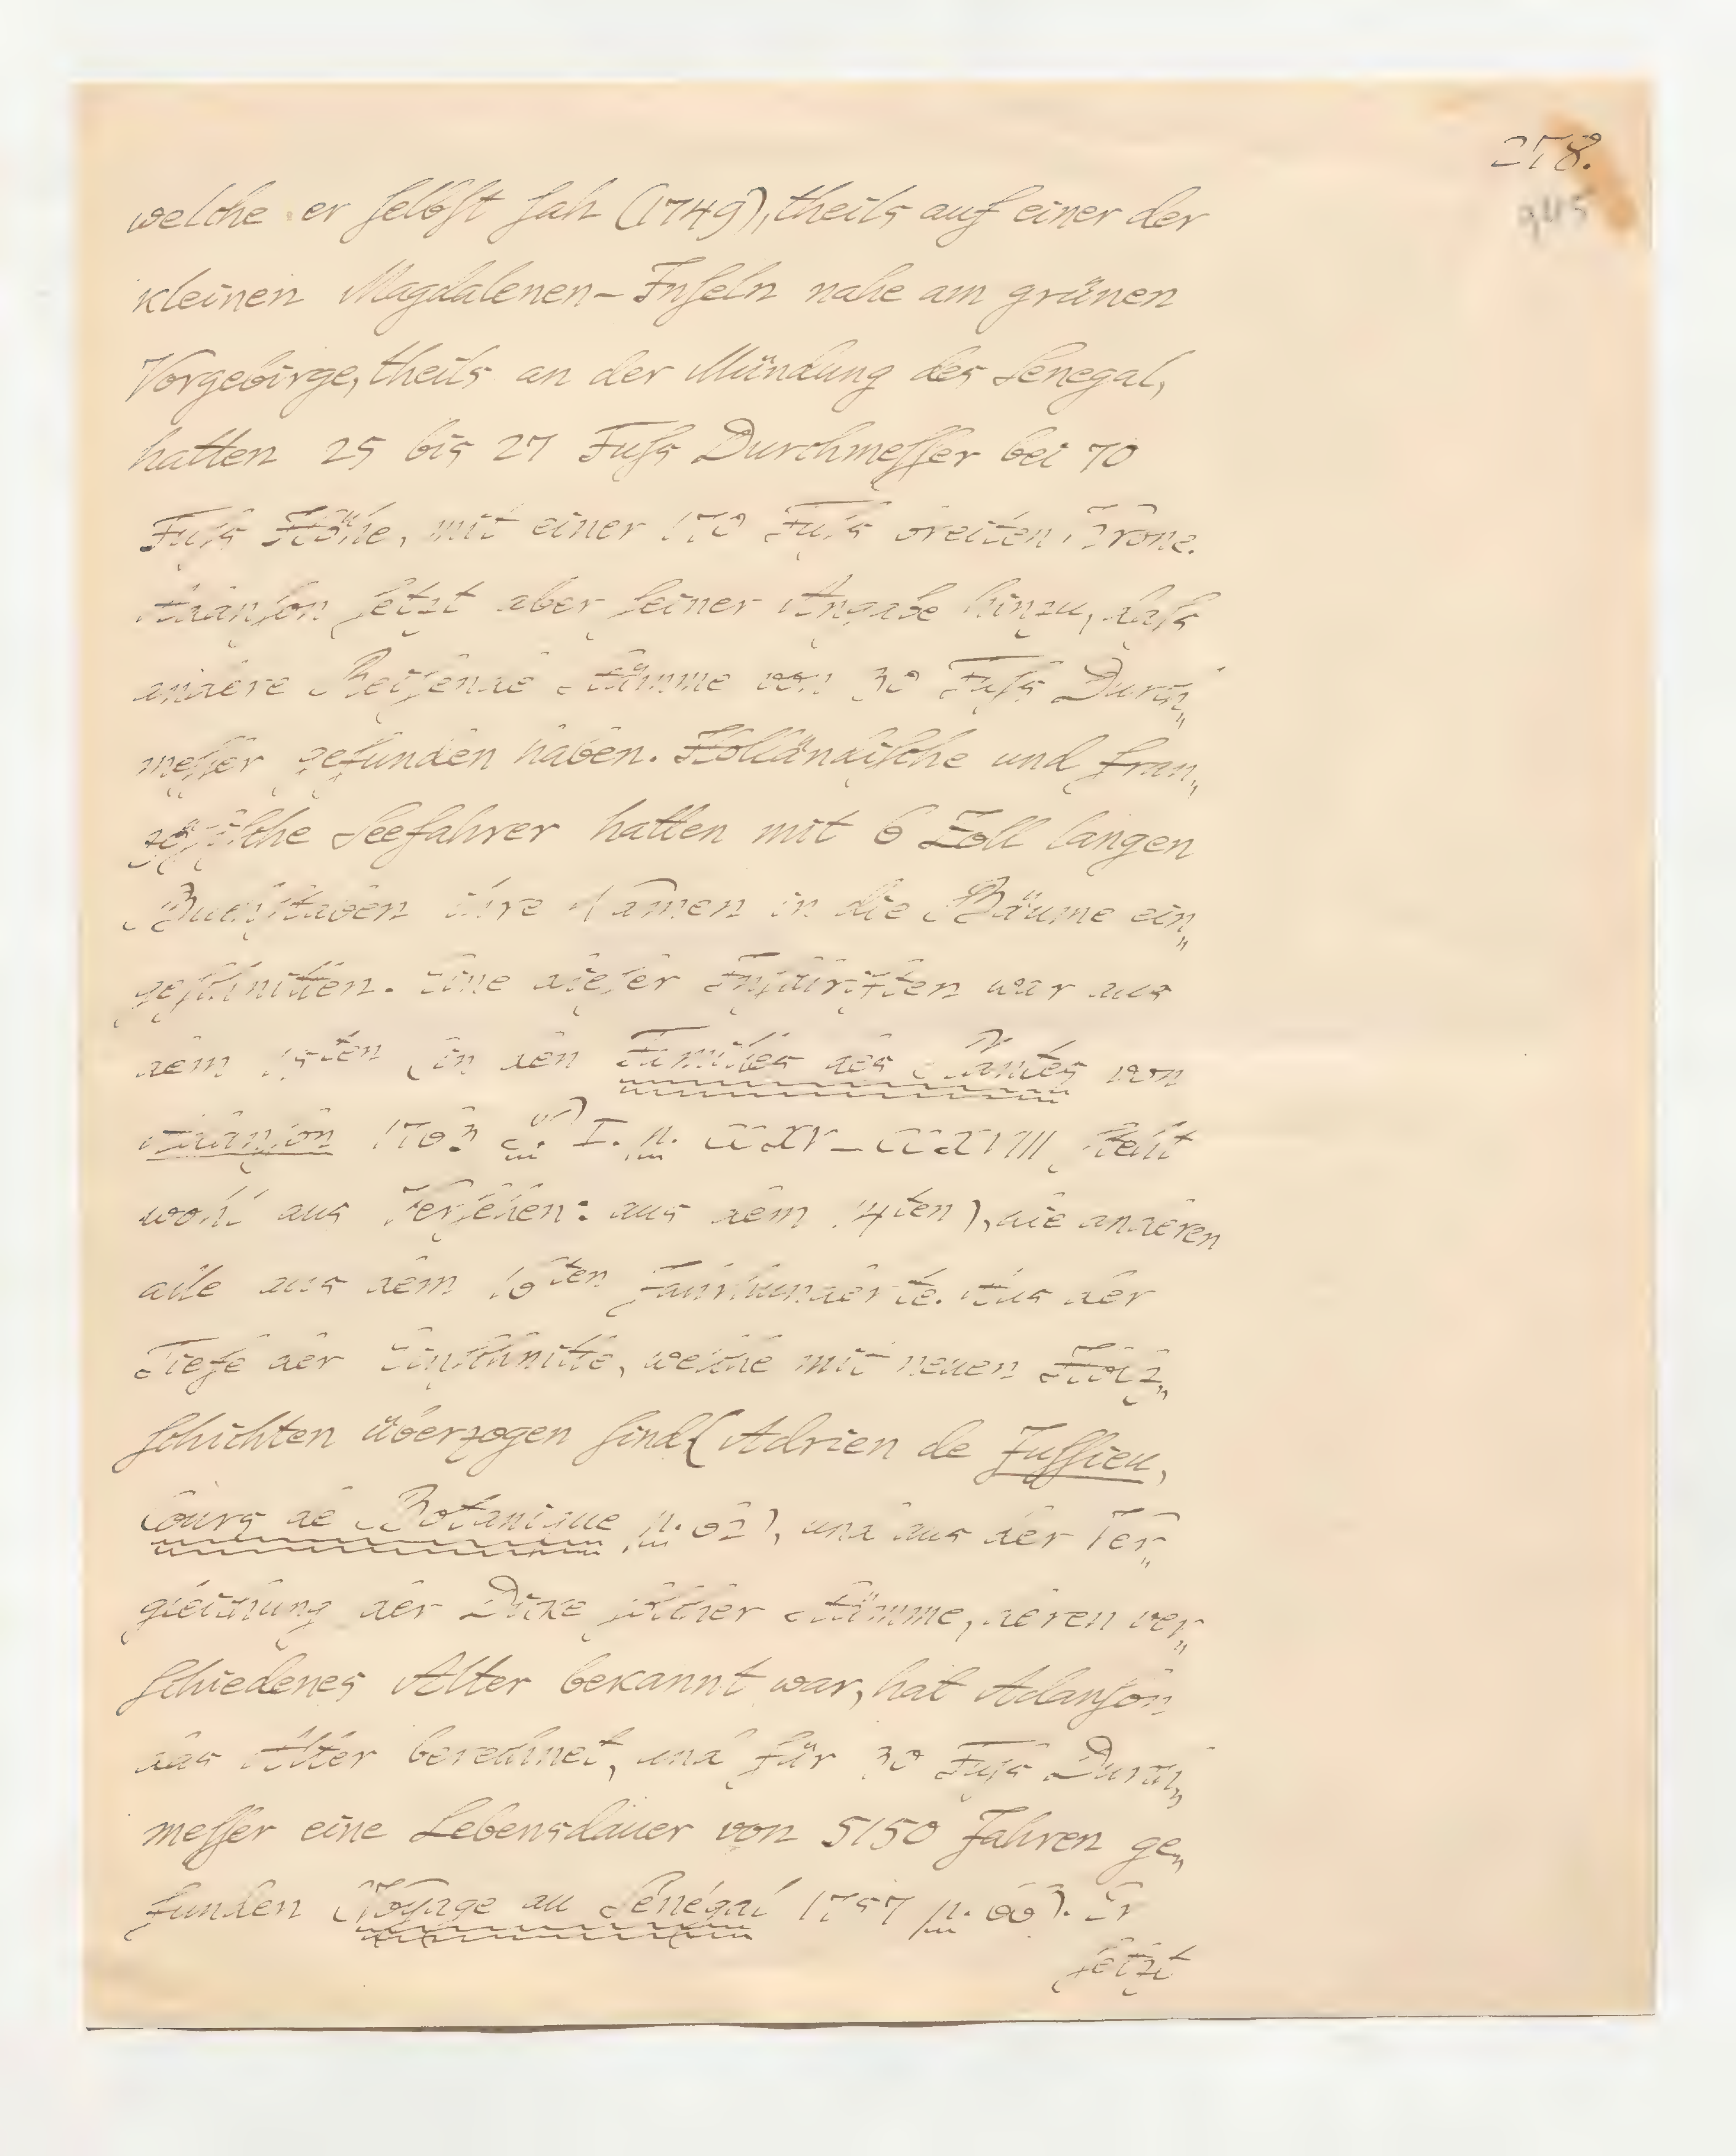 258.
945
welche er ſelbſt ſah (1749), theils auf einer der
kleinen Magdalenen-Inſeln nahe am grünen
Vorgebirge, theils an der Mündung des Senegal,
hatten 25 bis 27 Fuſs Durchmeſſer bei 70
Fuſs Höhe, mit einer 170 Fuſs breiten Krone.
Adanſon ſetzt aber ſeiner Angabe hinzu, daſs
andere Reiſende Stämme von 30 Fuſs Durch„
meſſer gefunden haben. Holländiſche und fran„
zöſiſche Seefahrer hatten mit 6 Zoll langen
Buchſtaben ihre Namen in die Bäume ein„
geſchnitten. Eine dieſer Inſchriften war aus
dem 15ten (in den Familles des Plantes von
Adanſon 1763 P. I. p. CCXV–CCXVIII ſteht
wohl aus Verſehen: aus dem 14ten), die anderen
alle aus dem 16ten Jahrhunderte. Aus der
Tiefe der Einſchnitte, welche mit neuen Holz„
ſchichten überzogen ſind (Adrien de Juſſieu,
Cours de Botanique p. 62), und aus der Ver„
gleichung der Dicke ſolcher Stämme, deren ver„
ſchiedenes Alter bekannt war, hat Adanſon
das Alter berechnet, und für 30 Fuſs Durch„
meſſer eine Lebensdauer von 5150 Jahren ge„
funden (Voyage au Sénégal 1757 p. 66). Er
ſetzt